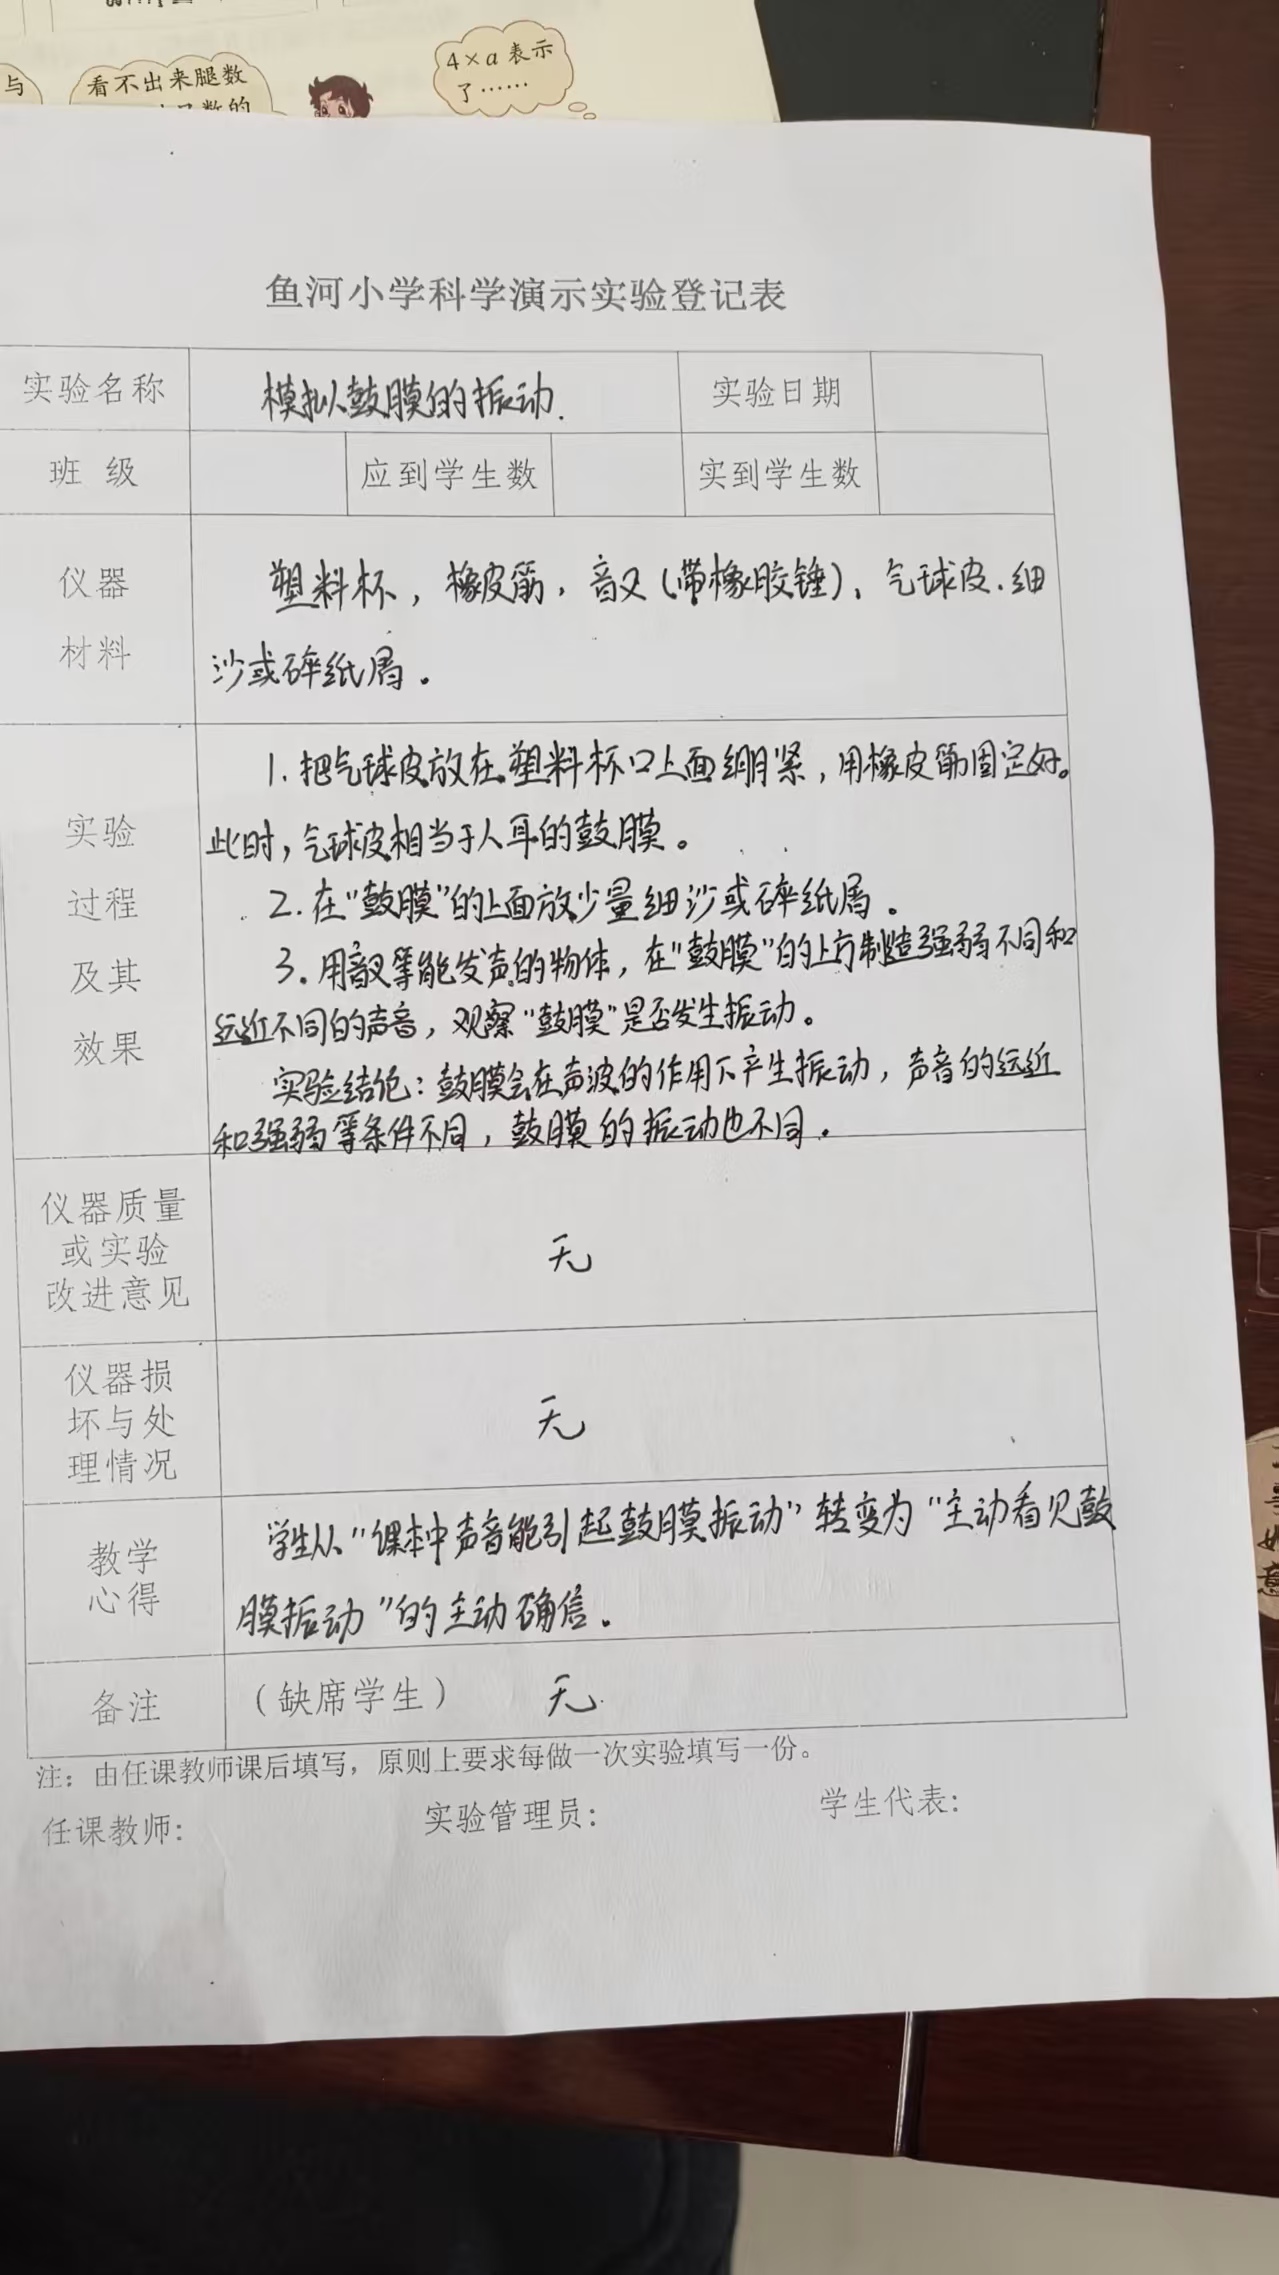 与
看不出来腿数
4×a表示
了……
鱼河小学科学演示实验登记表
实验名称 模拟鼓膜的振动. 实验日期
班 级 应到学生数 实到学生数
仪器
材料
塑料杯，橡皮筋，音叉（带橡胶锤）、气球皮、细
沙或碎纸屑。
实验
过程
及其
效果
1. 把气球皮放在塑料杯口上面绷紧，用橡皮筋固定好。
此时，气球皮相当于人耳的鼓膜。
2. 在“鼓膜”的上面放少量细沙或碎纸屑。
3. 用音叉等能发声的物体，在“鼓膜”的上方制造强弱不同和
远近不同的声音，观察“鼓膜”是否发生振动。
实验结论：鼓膜会在声波的作用下产生振动，声音的远近
和强弱等条件不同，鼓膜的振动也不同。
仪器质量
或实验
改进意见
无
仪器损
坏与处
理情况
无
教学
心得
学生从“课本中声音能引起鼓膜振动”转变为“主动看见鼓
膜振动”的主动确信。
备注 （缺席学生） 无
注：由任课教师课后填写，原则上要求每做一次实验填写一份。
任课教师: 实验管理员: 学生代表: